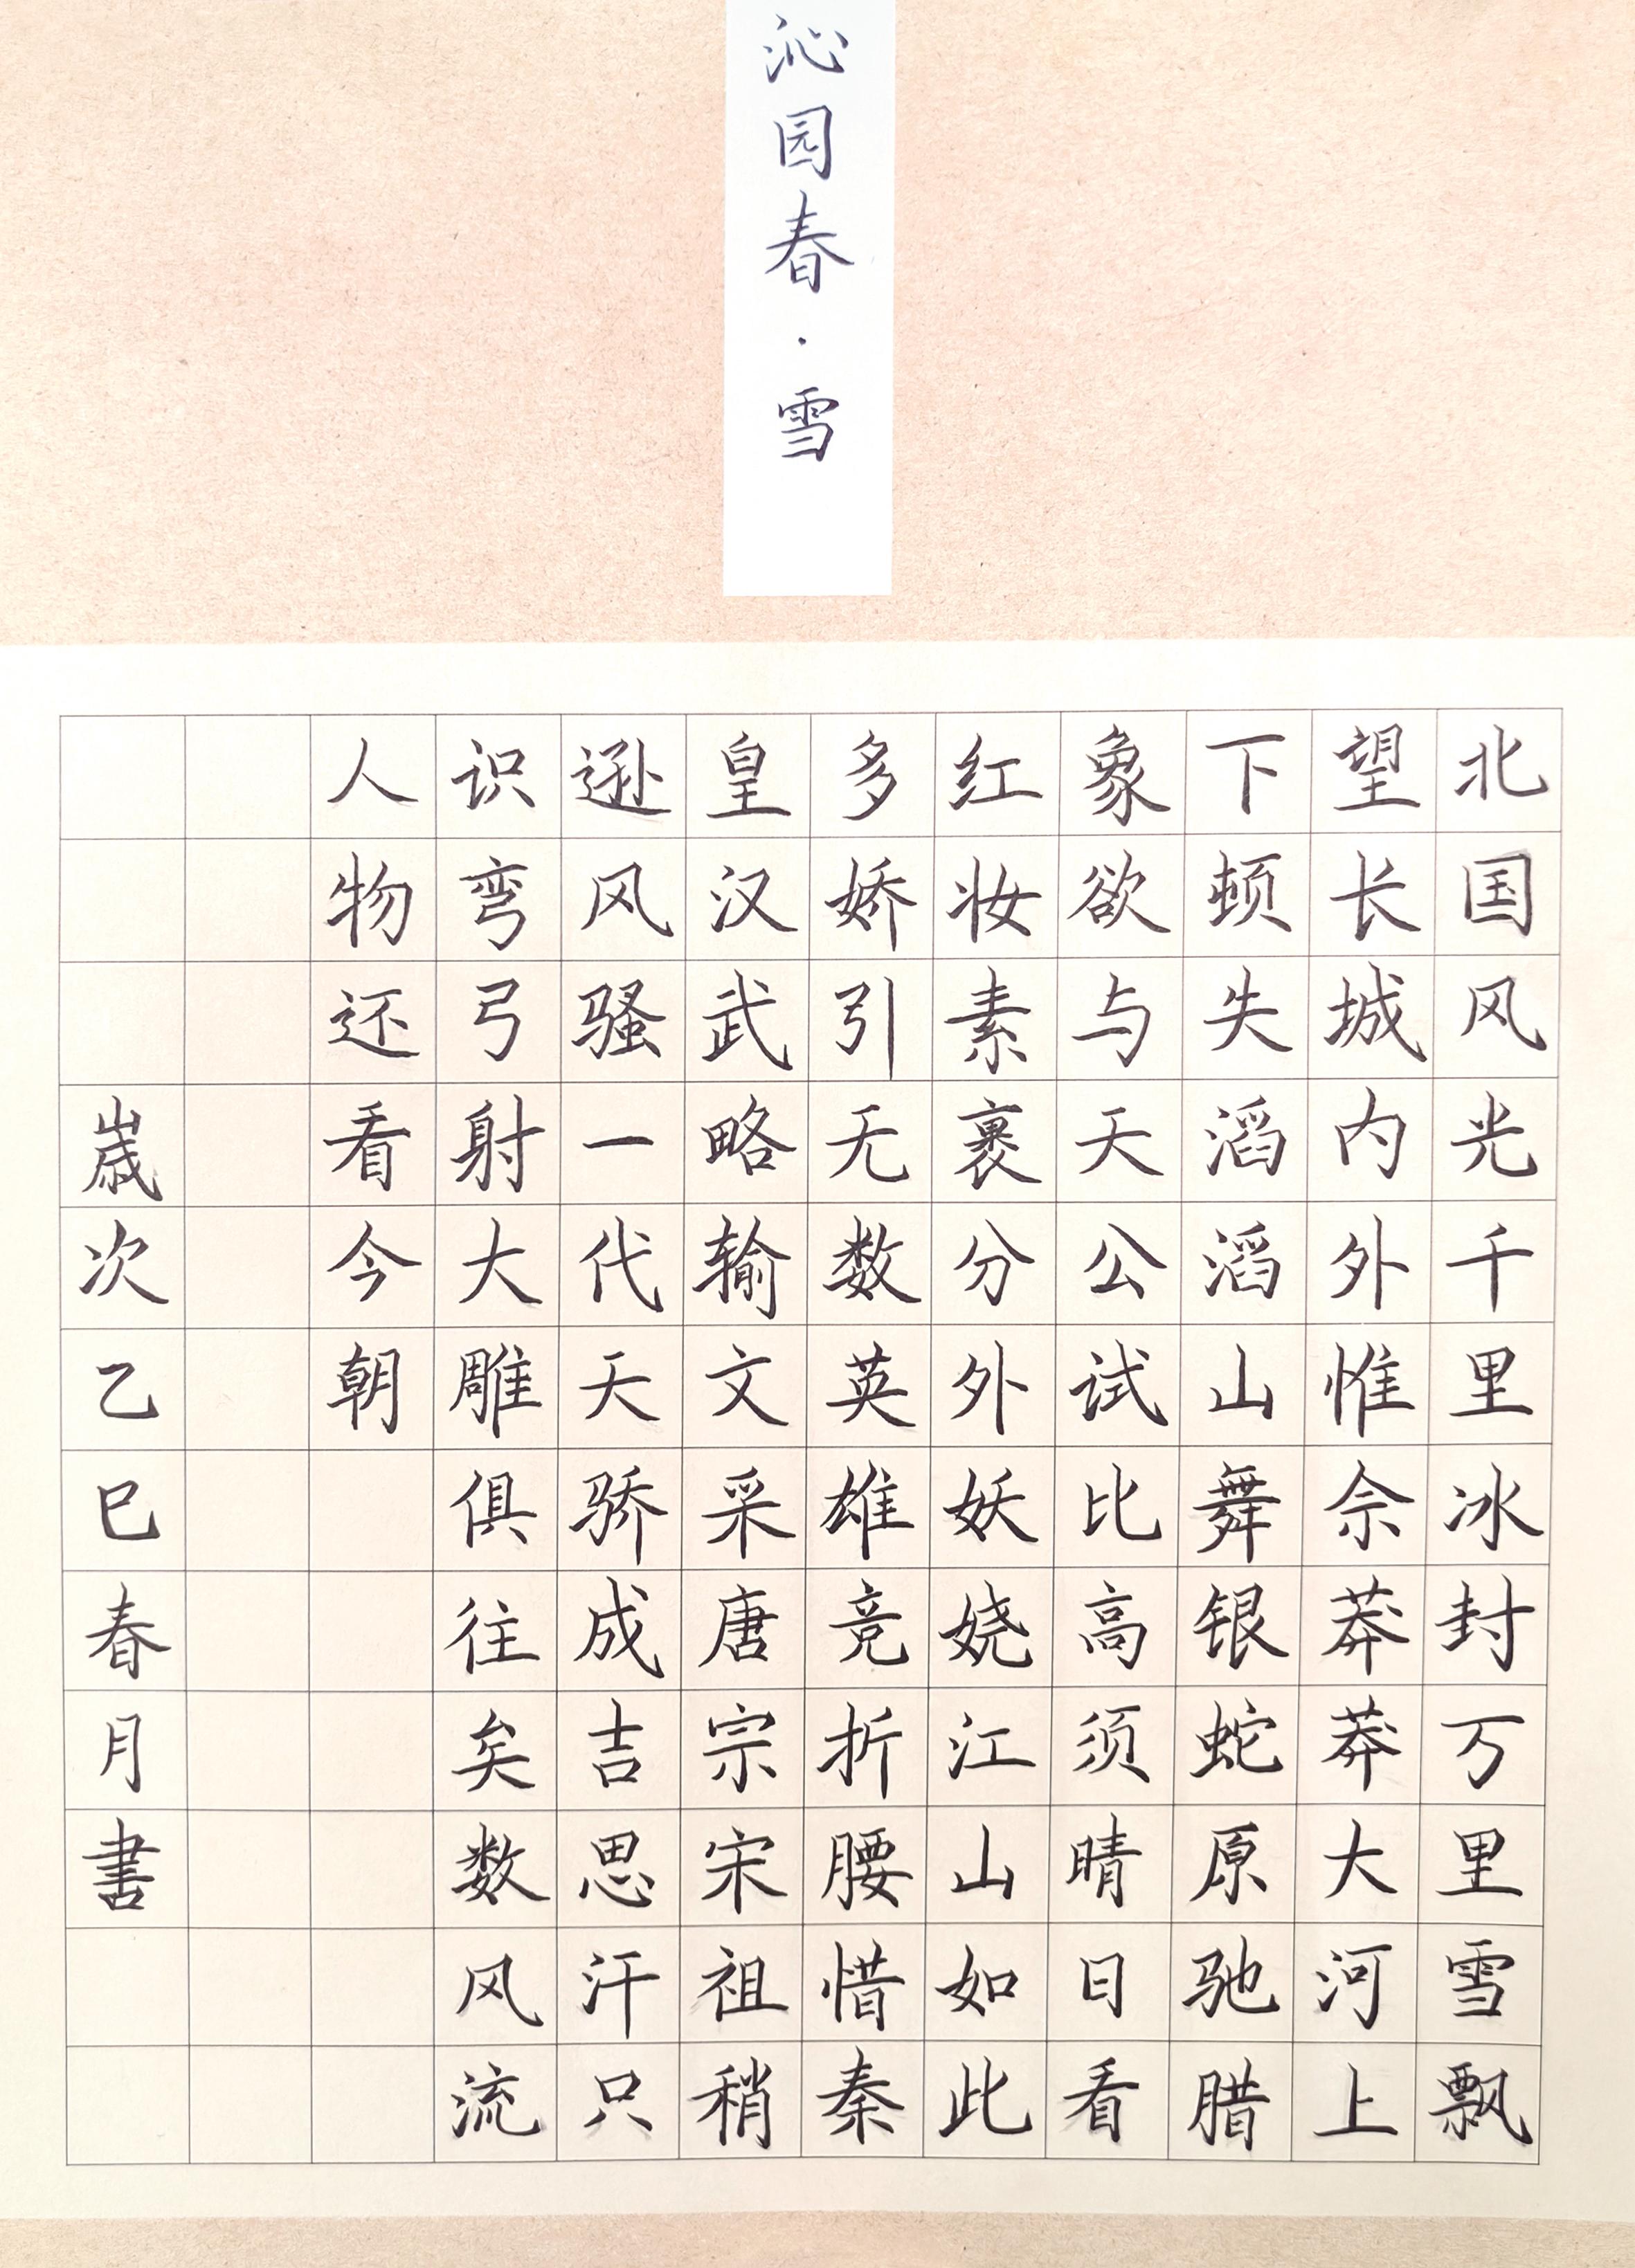 沁园春·雪
北国风光千里冰封万里雪飘
望长城内外惟余莽莽大河上
下顿失滔滔山舞银蛇原驰腊
象欲与天公试比高须晴日看
红妆素裹分外妖娆江山如此
多娇引无数英雄竞折腰惜秦
皇汉武略输文采唐宗宋祖稍
逊风骚一代天骄成吉思汗只
识弯弓射大雕俱往矣数风流
人物还看今朝
歲次乙巳春月書